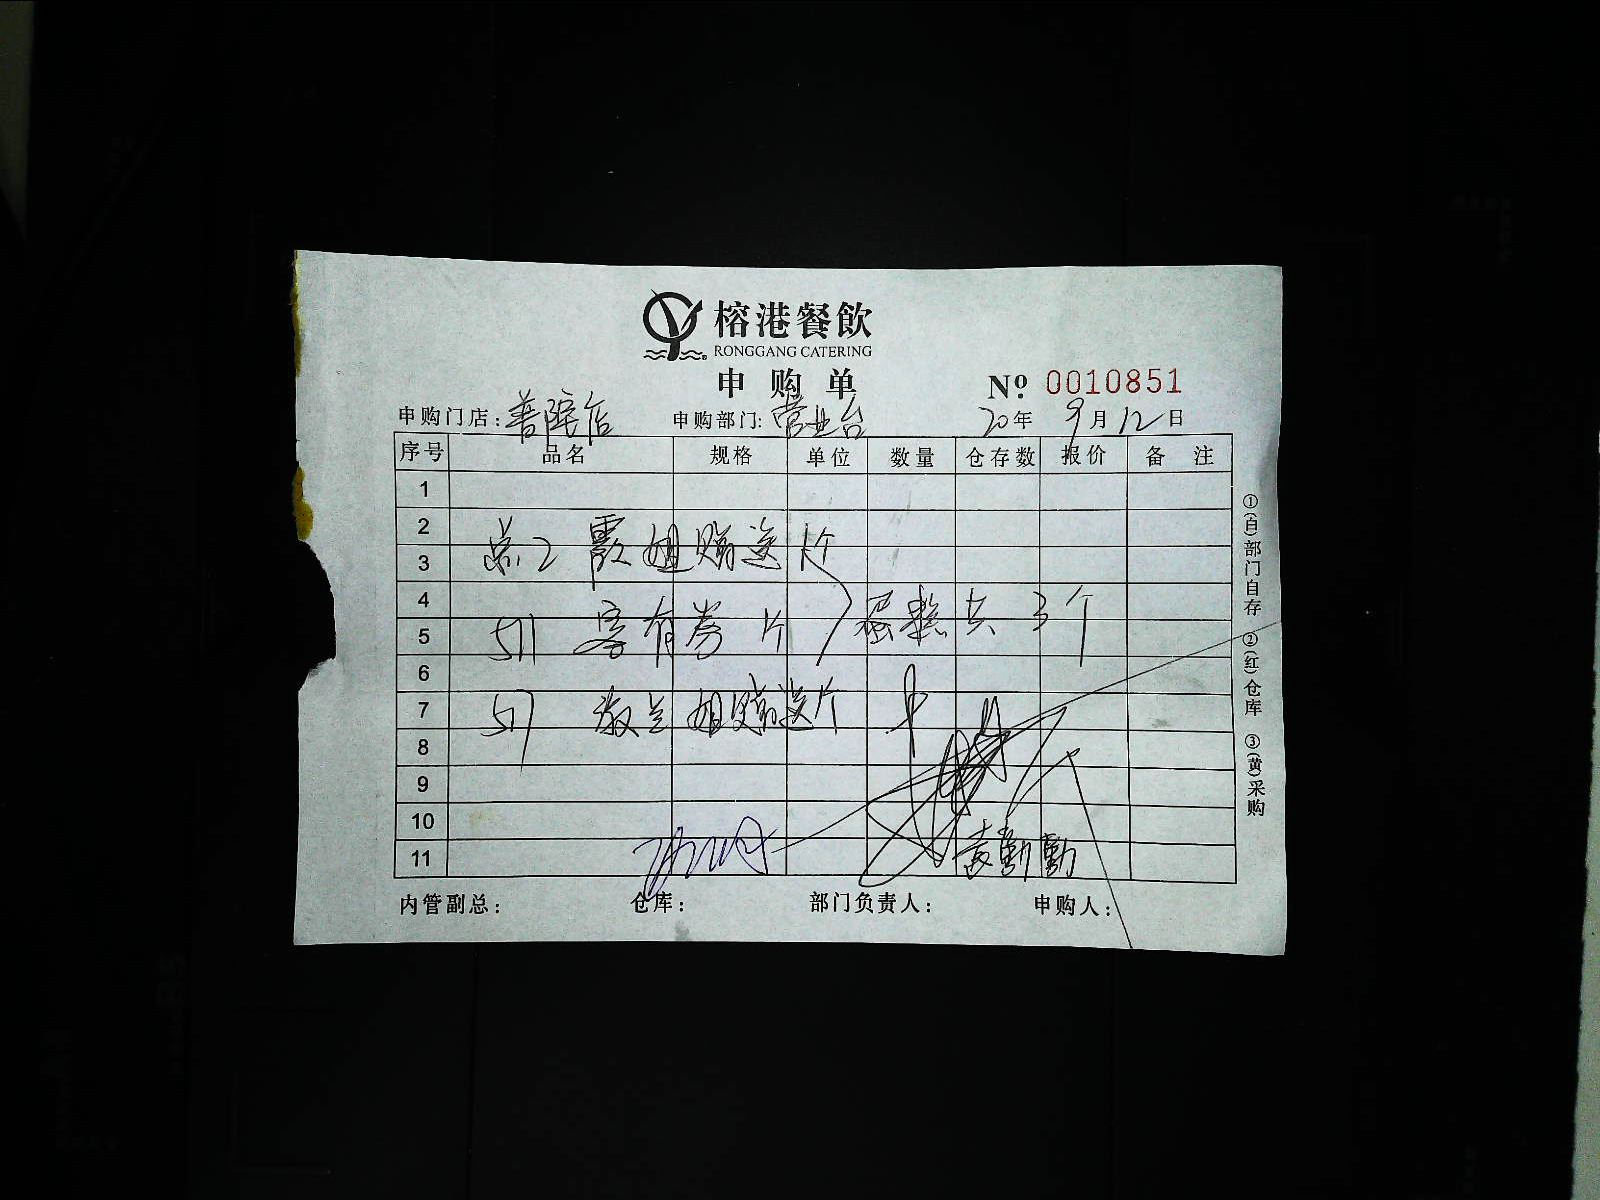 榕港餐飲
RONGGANG CATERING
申购单
№ 0010851
申购门店：普陀店 申购部门：营业台 20年9月12日
序号 品名 规格 单位 数量 仓存数 报价 备注
1
2
3
霞姐赠送1个
4
5
511 客有券 1个 蛋糕共3个
6
7
517 姐赠送1个
8
9
10
11
黄勤勤
内管副总： 仓库： 部门负责人： 申购人：
①(白)部门自存 ②(红)仓库 ③(黄)采购